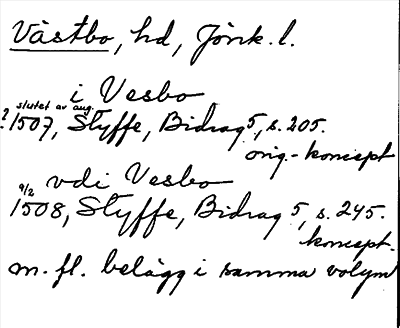 Västbo, hd, Jönk. l.
i Vesbo
? slutet av aug.
1507, Styffe, Bidrag 5, s. 205.
orig.-koncept
vdi Vesbo
9/2
1508, Styffe, Bidrag 5, s. 245.
koncept.
m. fl. belägg i samma volym